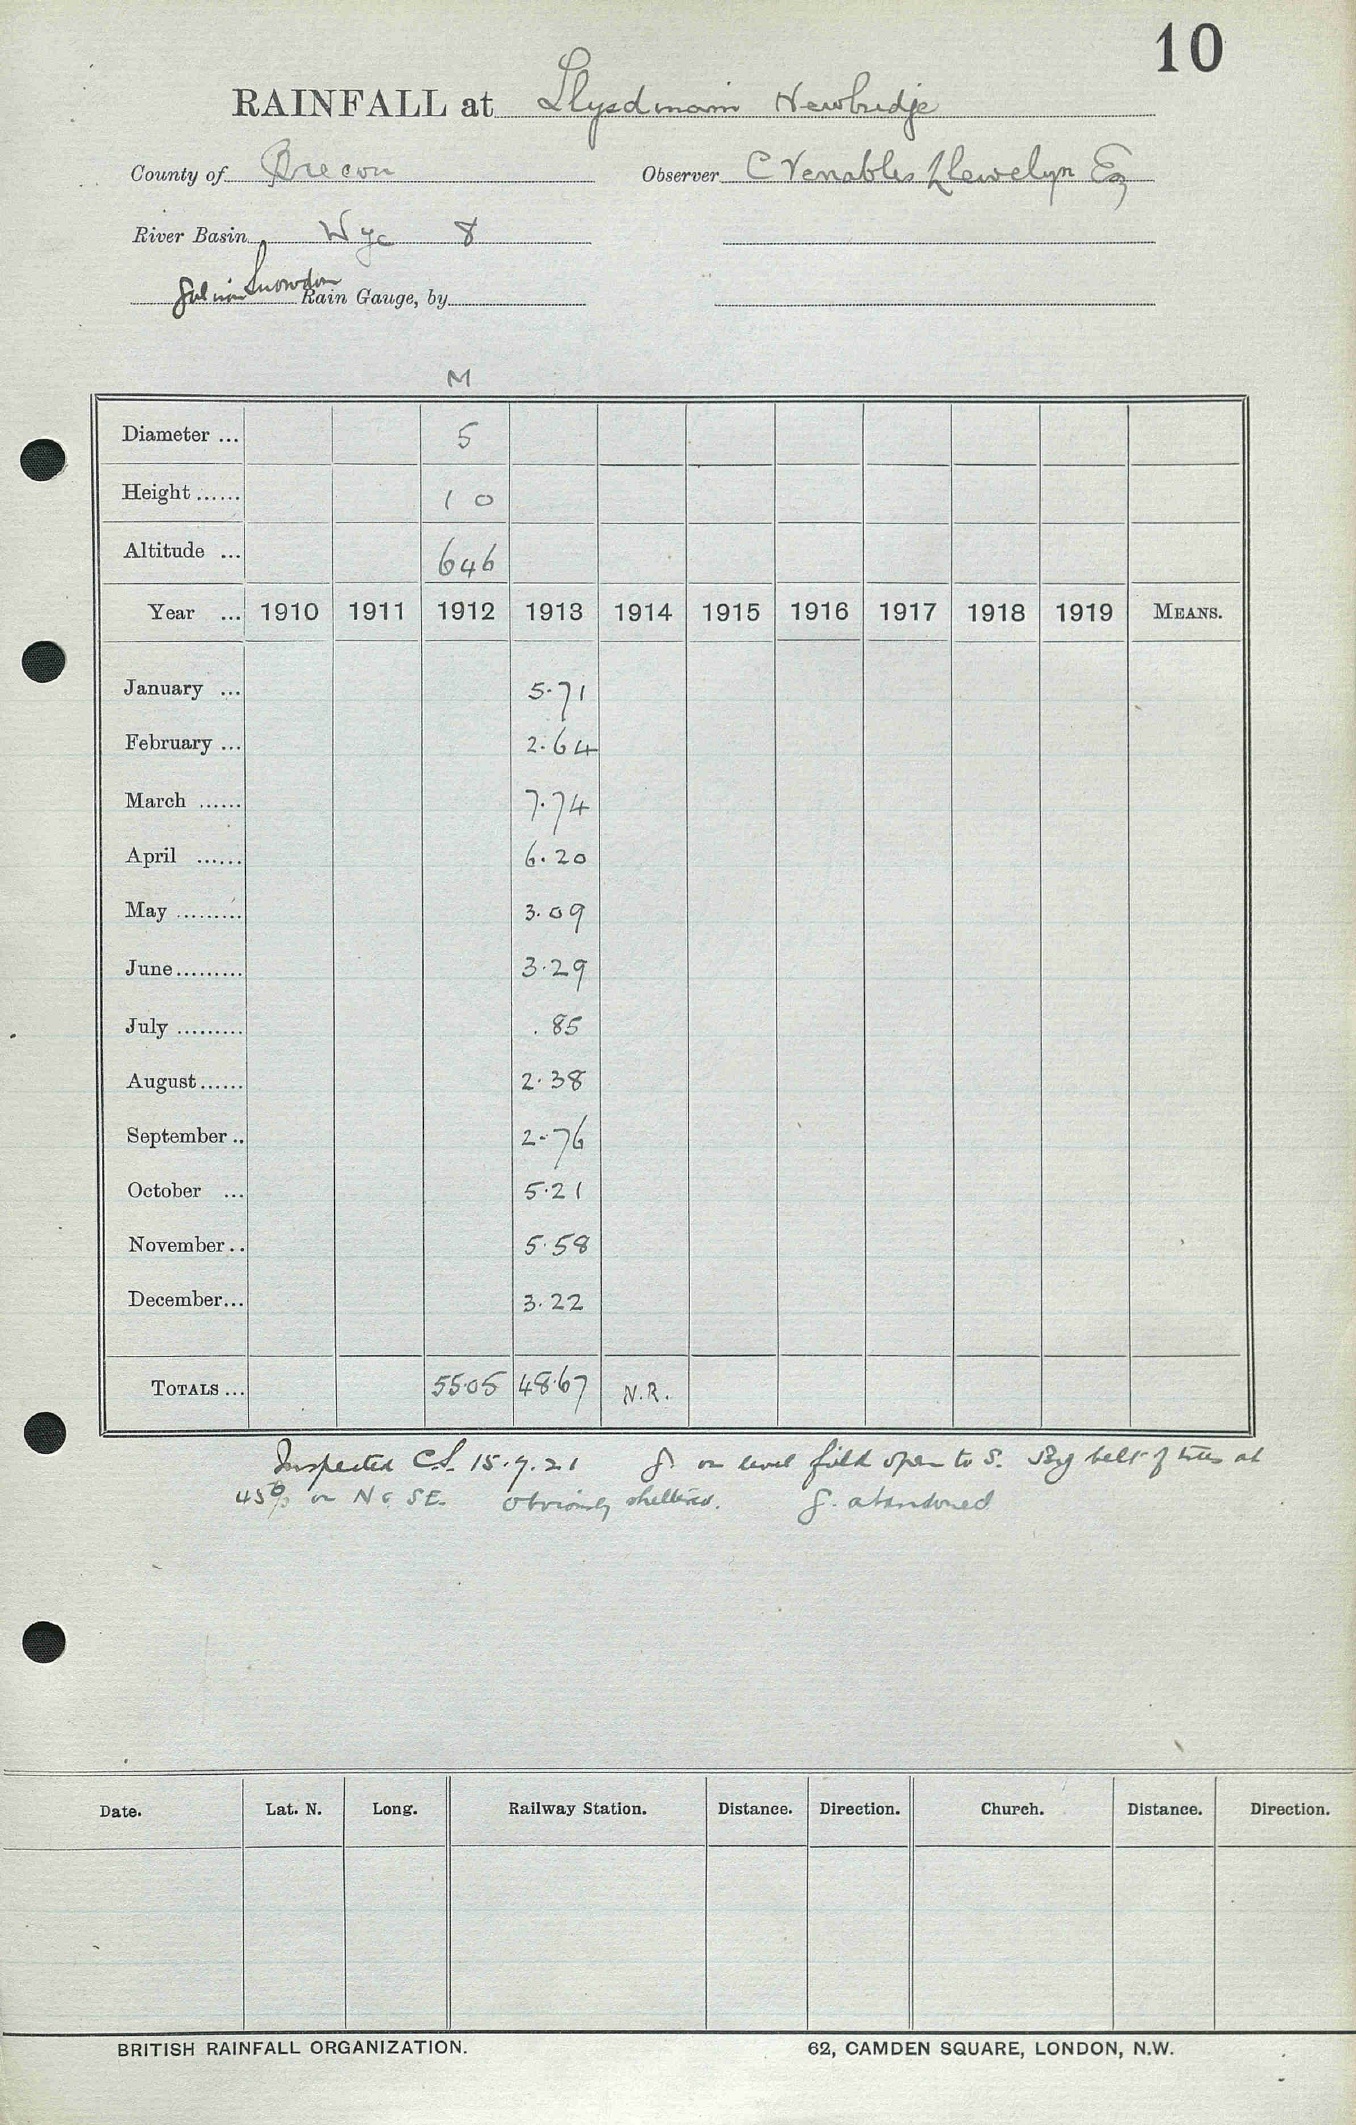 10
RAINFALL at Llysdinam Newbridge
County of Brecon Observer C Venables Llewelyn Esq
River Basin Wye 8
Snowdon
Rain Gauge, by
M
Diameter ... 5
Height ...... 1 0
Altitude ... 646
Year ... 1910 1911 1912 1913 1914 1915 1916 1917 1918 1919 MEANS.
January ... 5.71
February ... 2.64
March ...... 7.74
April ...... 6.20
May ......... 3.09
June ......... 3.29
July ......... .85
August ...... 2.38
September .. 2.76
October ... 5.21
November .. 5.58
December ... 3.22
TOTALS ... 55.05 48.67 N.R.
Inspected C.S. 15.9.21 g. on level field open to S. Big belt of trees at
45° on N & SE. Obviously sheltered. g. abandoned
Date. Lat. N. Long. Railway Station. Distance. Direction. Church. Distance. Direction.
BRITISH RAINFALL ORGANIZATION. 62, CAMDEN SQUARE, LONDON, N.W.